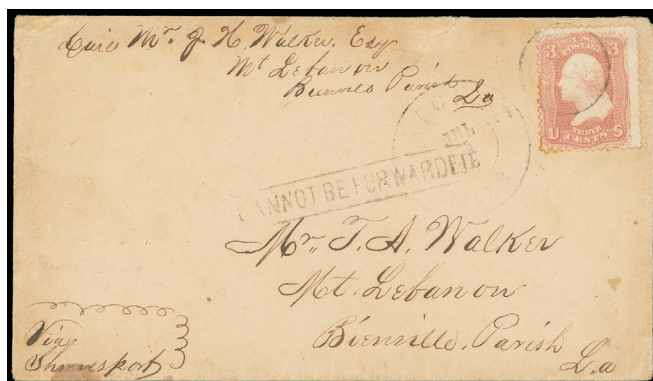 Care Mr. J. H. Walker. Esq
Mt Lebanon
Parish
La
3 U.S. POSTAGE 3
U THREE CENTS S
JUL
CANNOT BE FORWARDED
Mr. T. A. Walker
Mt. Lebanon
Bienville. Parish
La
Via
Shrevesport